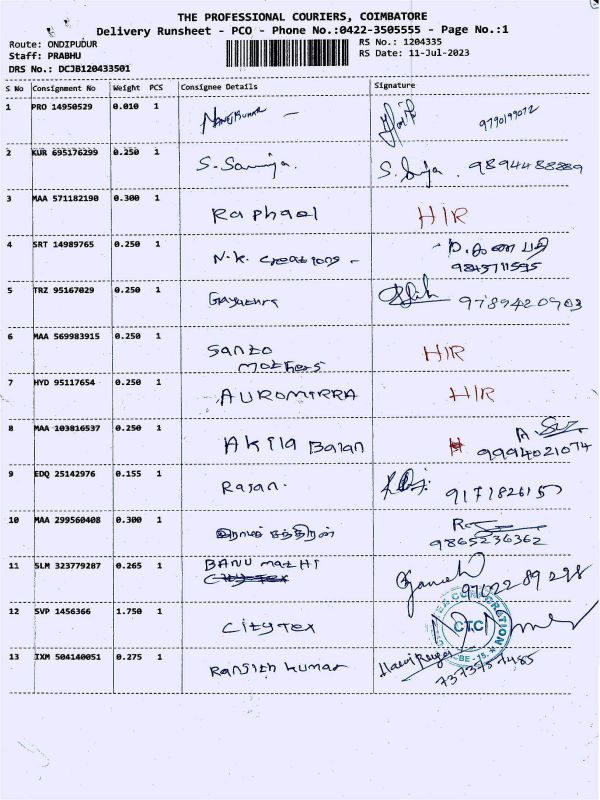 THE PROFESSIONAL COURIERS, COIMBATORE
Delivery Runsheet - PCO - Phone No.:0422-3505555 - Page No.:1
Route: ONDIPUDUR RS No.: 1204335
Staff: PRABHU RS Date: 11-Jul-2023
DRS No.: DCJB120433501
S No Consignment No Weight PCS Consignee Details Signature
1 PRO 14950529 0.010 1 9790199072
2 KUR 695176299 0.250 1 S. 9894488889
3 MAA 571182190 0.300 1 Raphael HIR
4 SRT 14989765 0.250 1 N.K. Creations -
5 TRZ 95167029 0.250 1 Gayathri 9789420903
6 MAA 569983915 0.250 1 Santo HIR
mothers
7 HYD 95117654 0.250 1 AUROMIRRA HIR
8 MAA 103816537 0.250 1 Akila Balan 9994021074
9 EDQ 25142976 0.155 1 Rajan.
10 MAA 299560408 0.300 1 9865236362
11 SLM 323779287 0.265 1 BANU mathi Ganesh
12 SVP 1456366 1.750 1 Citytex CTC
13 IXM 504140051 0.275 1 Ranjith Kumar